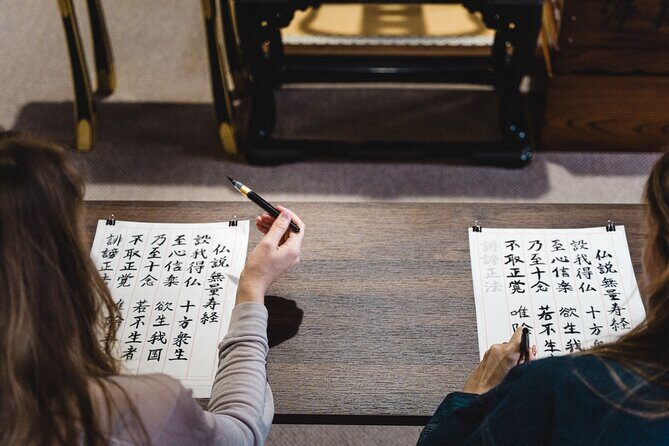 仏説無量寿経
設我得仏 十方衆生
至心信楽 欲生我国
乃至十念 若不生者
不取正覚 唯除
誹謗正
仏説無量寿経
設我得仏 十方衆
至心信楽 欲生我
乃至十念 若不生
不取正覚 唯
誹謗正法